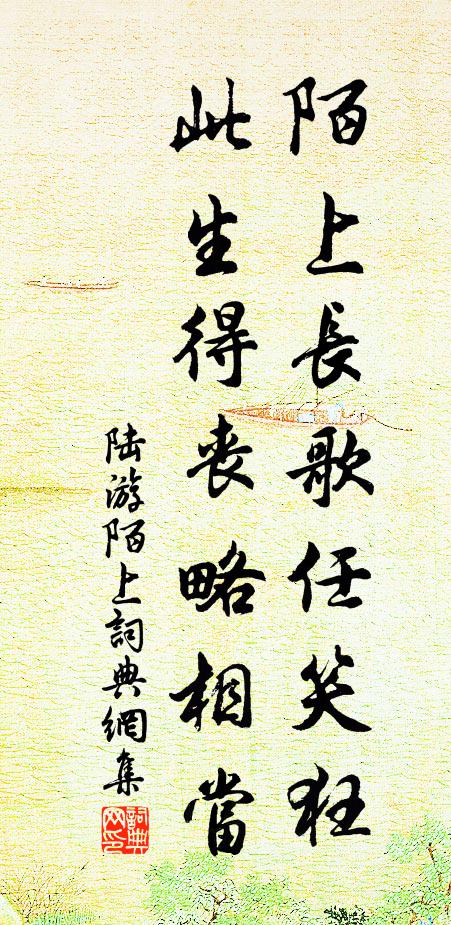 陌上長歌任笑狂
此生得喪略相當
陸游陌上詞典網集
詞典网印